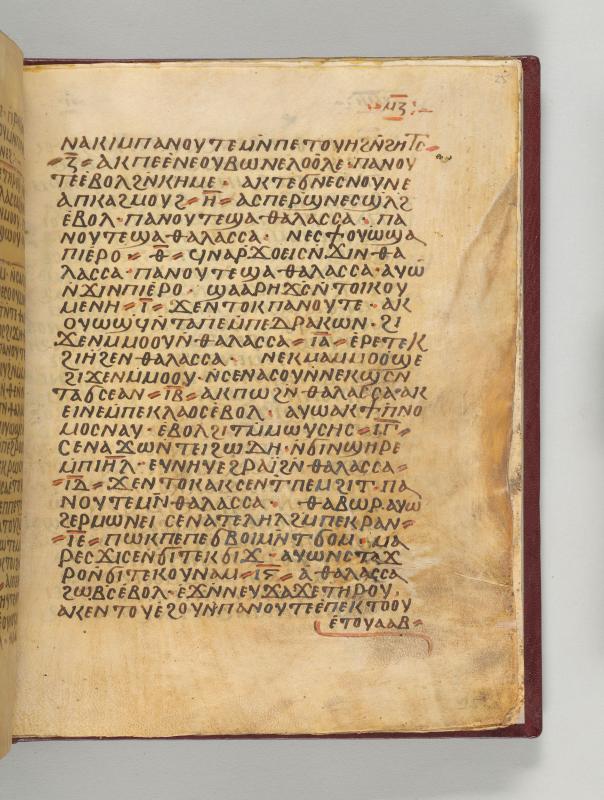 25
ⲙⲍ
ⲛⲁⲕⲓⲙⲡⲁⲛⲟⲩⲧⲉⲙⲛ̄ⲡⲉⲧⲟⲩⲏϩⲛ̄ϩⲏⲧⲥ
ⲍ̄ ⲁⲕⲡⲉⲉⲛⲉⲟⲩⲃⲱⲛⲉⲗⲟⲟⲗⲉ· ⲡⲁⲛⲟⲩ
ⲧⲉⲉⲃⲟⲗϩⲛ̄ⲕⲏⲙⲉ· ⲁⲕⲧⲉϭⲛⲉⲥⲛⲟⲩⲛⲉ
ⲁⲡⲕⲁϩⲙⲟⲩϩ ⲏ̄ ⲁⲥⲡⲉⲣϣⲛⲉⲥϣⲗϩ
ⲉⲃⲟⲗ· ⲡⲁⲛⲟⲩⲧⲉϣⲁⲑⲁⲗⲁⲥⲥⲁ· ⲡⲁ
ⲛⲟⲩⲧⲉϣⲁⲑⲁⲗⲁⲥⲥⲁ· ⲛⲉⲥϯⲟⲩⲱϣⲁ
ⲡⲓⲉⲣⲟ ⲑ̄ ϥⲛⲁⲣϫⲟⲉⲓⲥⲛ̄ϫⲓⲛⲑⲁ
ⲗⲁⲥⲥⲁ· ⲡⲁⲛⲟⲩⲧⲉϣⲁⲑⲁⲗⲁⲥⲥⲁ· ⲁⲩⲱ
ⲛ̄ϫⲓⲛⲡⲓⲉⲣⲟ· ϣⲁⲁⲣⲏϫⲥⲛ̄ⲧⲟⲓⲕⲟⲩ
ⲙⲉⲛⲏ ⲓ̄ ϫⲉⲛⲧⲟⲕⲡⲁⲛⲟⲩⲧⲉ· ⲁⲕ
ⲟⲩⲱϣϥⲛ̄ⲧⲁⲡⲉⲙⲡⲉⲇⲣⲁⲕⲱⲛ· ϩⲓ
ϫⲉⲛⲙⲙⲟⲟⲩⲛ̄ⲑⲁⲗⲁⲥⲥⲁ ⲓ̄ⲁ̄ ⲉⲣⲉⲧⲉⲕ
ϩⲓⲏϩⲉⲛⲑⲁⲗⲁⲥⲥⲁ· ⲛⲉⲕⲙⲁⲙⲙⲟⲟϣⲉ
ϩⲓϫⲉⲛⲙⲙⲟⲟⲩ· ⲛ̄ⲥⲉⲛⲁⲥⲟⲩⲛⲛⲉⲕϣⲥⲛ
ⲧⲁϭⲥⲉⲁⲛ ⲓ̄ⲃ̄ ⲁⲕⲡⲱϩⲛ̄ⲑⲁⲗⲁⲥⲥⲁ· ⲁⲕ
ⲉⲓⲛⲉⲙⲡⲉⲕⲗⲁⲟⲥⲉⲃⲟⲗ· ⲁⲩⲱⲁⲕϯⲡ̄ⲛⲟ
ⲙⲟⲥⲛⲁⲩ· ⲉⲃⲟⲗϩⲓⲧⲙ̄ⲙⲱⲩⲥⲏⲥ ⲓ̄ⲅ̄
ⲥⲉⲛⲁϫⲱⲛ̄ⲧⲉⲓϩⲱⲇⲏ· ⲛ̄ϭⲓⲛϣⲏⲣⲉ
ⲙ̄ⲡⲓⲏ̄ⲗ· ⲉⲩⲛⲏⲩⲉϩⲣⲁⲓϩⲛ̄ⲑⲁⲗⲁⲥⲥⲁ
ⲓ̄ⲇ̄ ϫⲉⲛⲧⲟⲕⲁⲕⲥⲉⲛⲧⲡⲉⲙϩⲓⲧ· ⲡⲁ
ⲛⲟⲩⲧⲉⲙⲛ̄ⲑⲁⲗⲁⲥⲥⲁ· ⲑⲁⲃⲱⲣ· ⲁⲩⲱ
ϩⲉⲣⲙⲱⲛⲉⲓ ⲥⲉⲛⲁⲧⲉⲗⲏⲗϩⲙⲡⲉⲕⲣⲁⲛ
ⲓ̄ⲉ̄ ⲡⲱⲕⲡⲉⲡⲉϭⲃⲟⲓⲙⲛ̄ⲧϭⲟⲙ· ⲙⲁ
ⲣⲉⲥϫⲓⲥⲉⲛϭⲓⲧⲉⲕϭⲓϫ· ⲁⲩⲱⲛⲥⲧⲁϫ
ⲣⲟⲛ̄ϭⲓⲧⲉⲕⲟⲩⲛⲁⲙ ⲓ̄ⲋ̄ ⲁⲑⲁⲗⲁⲥⲥⲁ
ϩⲱⲃⲥⲉⲃⲟⲗ· ⲉϫⲛ̄ⲛⲉⲩϫⲁϫⲉⲧⲏⲣⲟⲩ·
ⲁⲕⲉⲛⲧⲟⲩⲉϩⲟⲩⲛⲡⲁⲛⲟⲩⲧⲉⲉⲡⲉⲕⲧⲟⲟⲩ
ⲉⲧⲟⲩⲁⲁⲃ